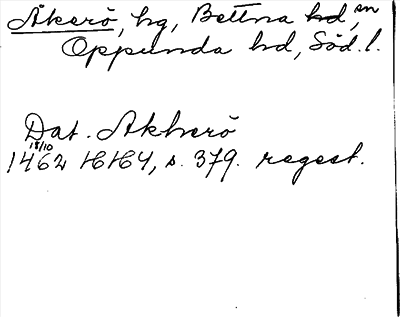 Åkerö, hg, Bettna hd, sn
Oppunda hd, Söd. l.
Dat. Akherö
18/10
1462 HH4, s. 379. regest.